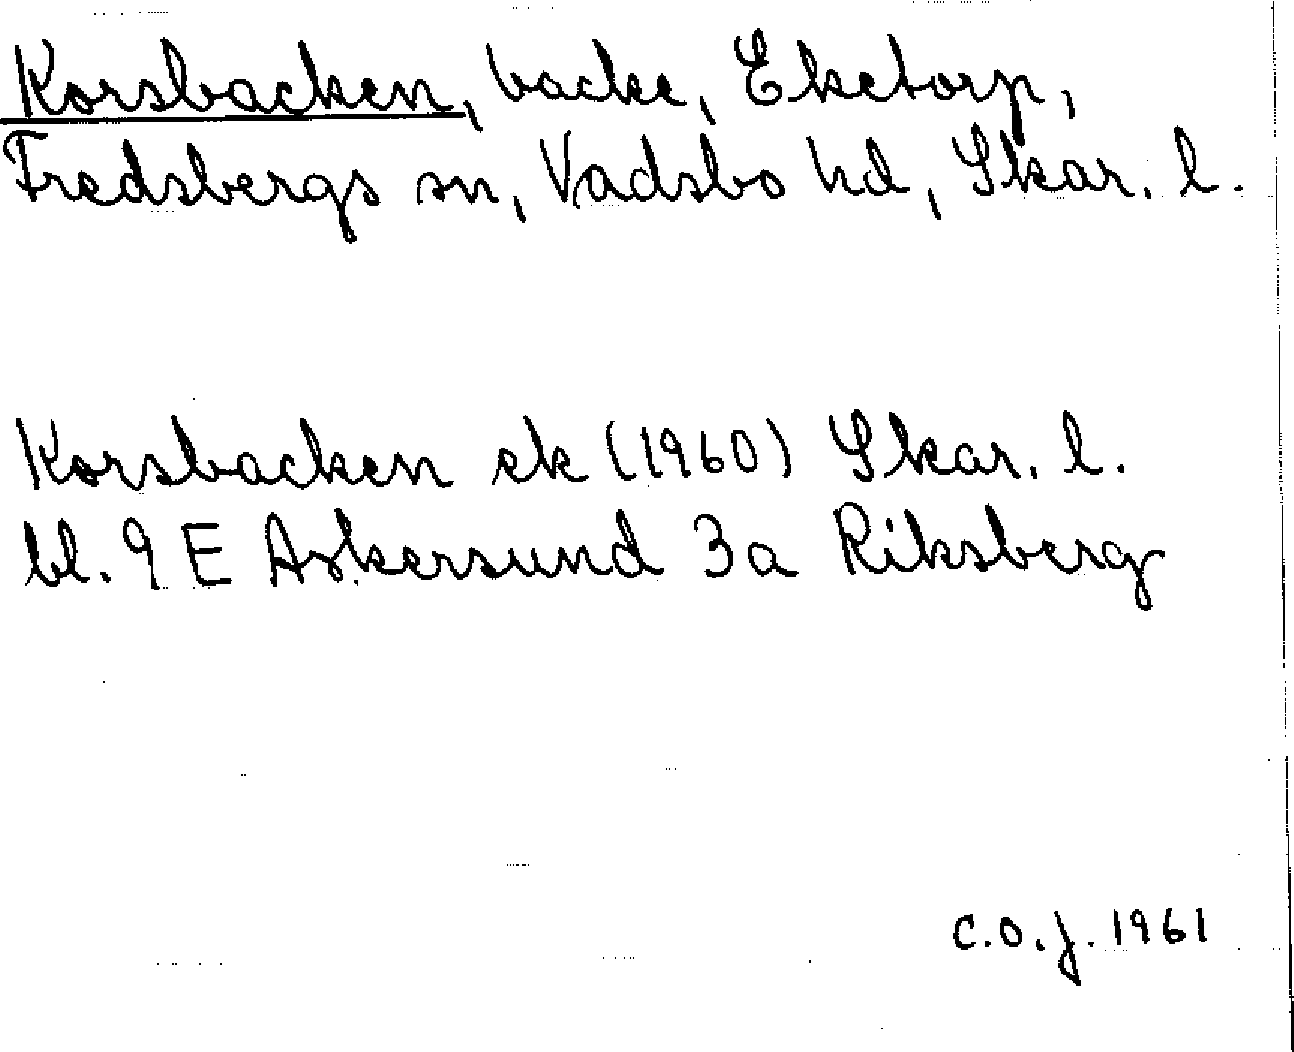 Korsbacken, backe, Eketorp,
Fredsbergs sn, Vadsbo hd, Skar. l.
Korsbacken ek (1960) Skar. l.
bl. 9 E Askersund 3a Riksberg
C.O.J. 1961